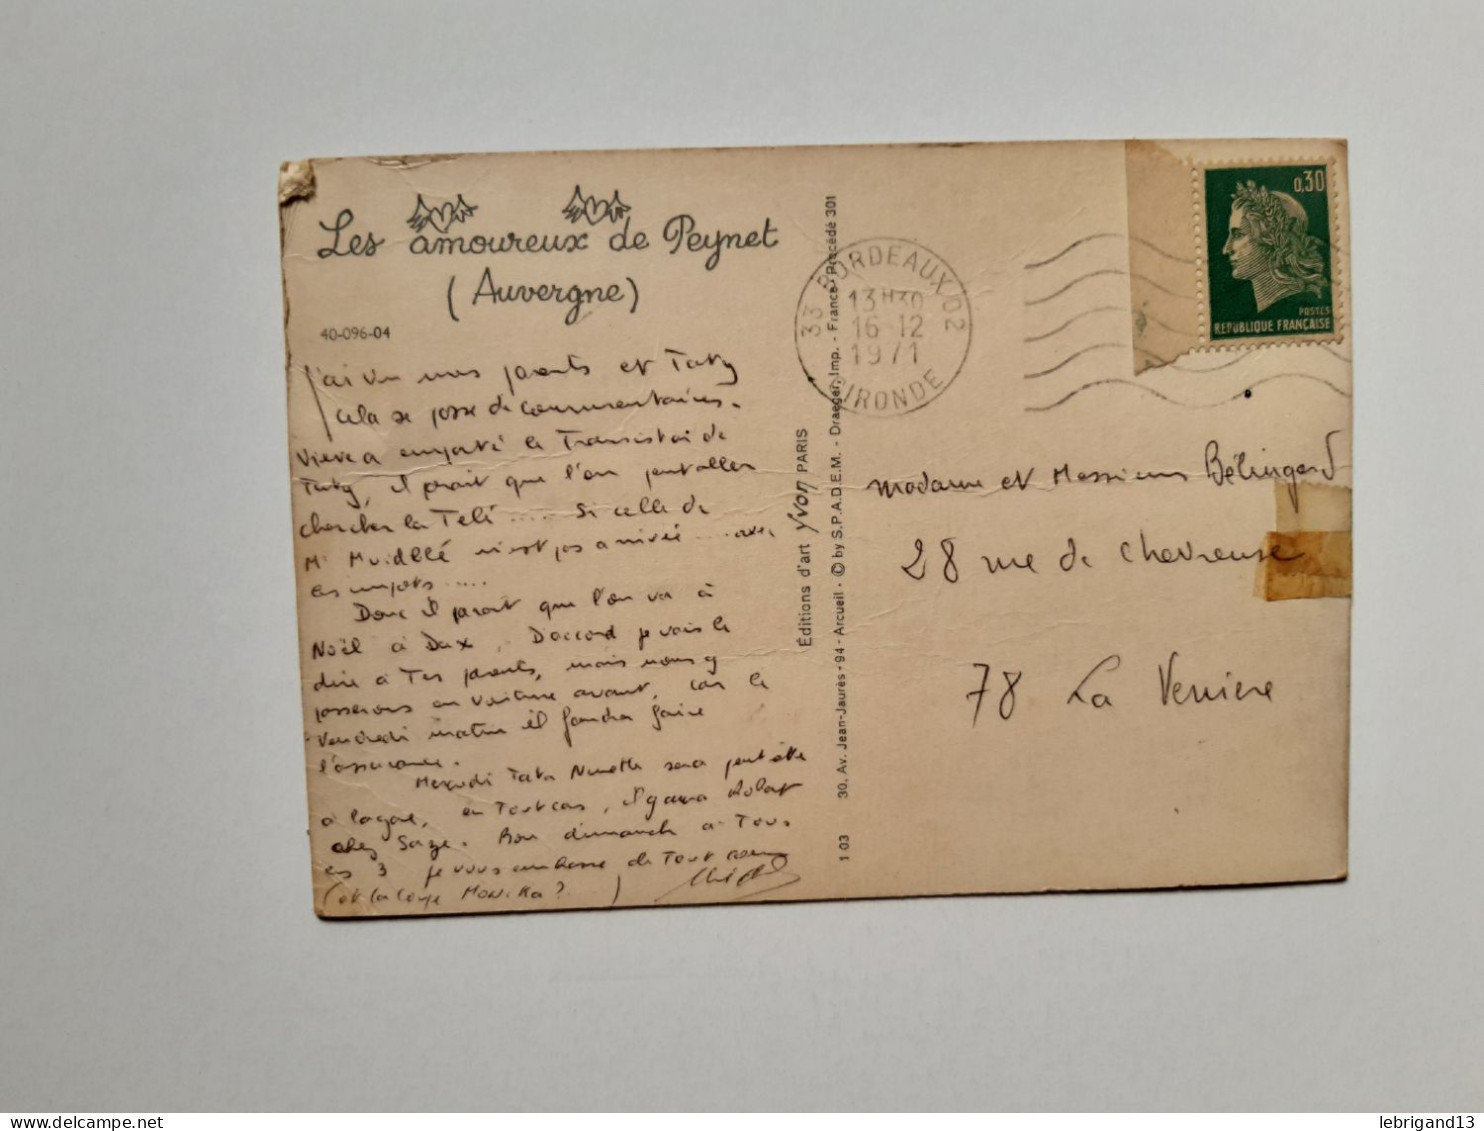 Les amoureux de Peynet
(Auvergne)
40-096-04
J'ai vu mes parents et Taty
cela se passe de commentaires.
Vieve a emporté le Transistor de
Taty, il parait que l'on peut aller
chercher la Télé ..... Si celle de
Mr n'est pas arrivée .... avec
les impots .....
Donc il parait que l'on va à
Noël à Dax. D'accord je vais le
dire à Tes parents, mais nous y
passerons en voiture avant, car le
Vendredi matin il faudra faire
l'assurance.
Mercredi Tata Ninette sera peut être
à la gare, en Tout cas, il y aura Robert
chez Sage. Bon dimanche à Tous
les 3 je vous embrasse de Tout coeur
(et la coupe Monika ? )
Éditions d'art Yvon PARIS
30, Av. Jean-Jaurès - 94 - Arcueil - © by S.P.A.D.E.M. - Draeger, Imp. - France - Procédé 301
1 03
33 BORDEAUX 02
13H30
16-12
1971
GIRONDE
0,30
POSTES
REPUBLIQUE FRANÇAISE
Madame et Messieurs Bélingard
28 rue de Chevreuse
78 La Verriere
lebrigand13